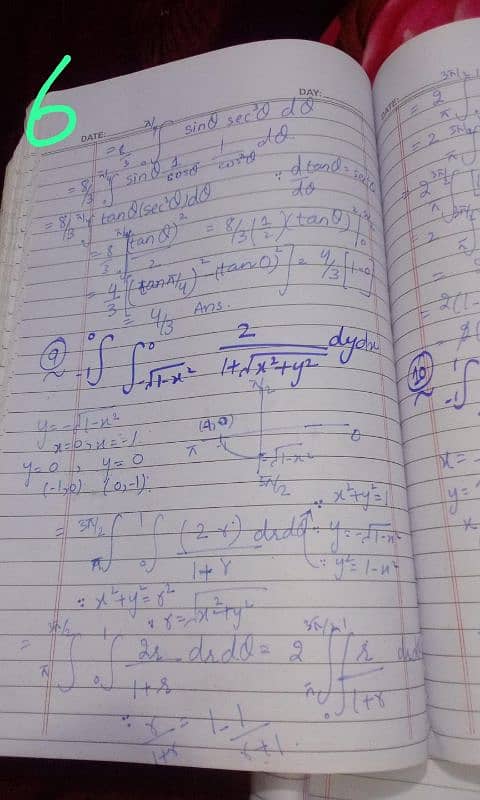 6
DATE:
DAY:
= 8/3 ∫₀^{π/4} sinθ sec³θ dθ
= 8/3 ∫₀^{π/4} sinθ 1/cosθ 1/cos²θ dθ
= 8/3 ∫ tanθ (sec²θ) dθ ∵ d tanθ / dθ = sec²θ
= 8/3 [tanθ]²/2 = 8/3 (1/2) (tanθ)²
= 4/3 [(tan π/4)² - (tan 0)²] = 4/3 [1-0]
= 4/3 Ans.
⑨ ∫_{-1}^{0} ∫_{-√1-x²}^{0} 2/(1+√x²+y²) dydx
y = -√1-x²
x=0, x=-1
y=0, y=0
(-1,0) (0,-1)
π/2
π
0
-√1-x²
3π/2
∵ x²+y²=1
∵ y=-√1-x²
∵ y²=1-x²
= ∫_{π}^{3π/2} ∫₀^{1} (2·r)/(1+r) drdθ
∵ x²+y²=r²
∵ r=√x²+y²
= ∫_{π}^{3π/2} ∫₀^{1} 2r/(1+r) drdθ = 2 ∫_{π}^{3π/2} ∫₀^{1} r/(1+r)
∵ r/(1+r) = 1 - 1/(r+1)
DATE:
= 2
= 2
= 2
= 2
⑩ ∫_{-1}^{1}
x=-
y=